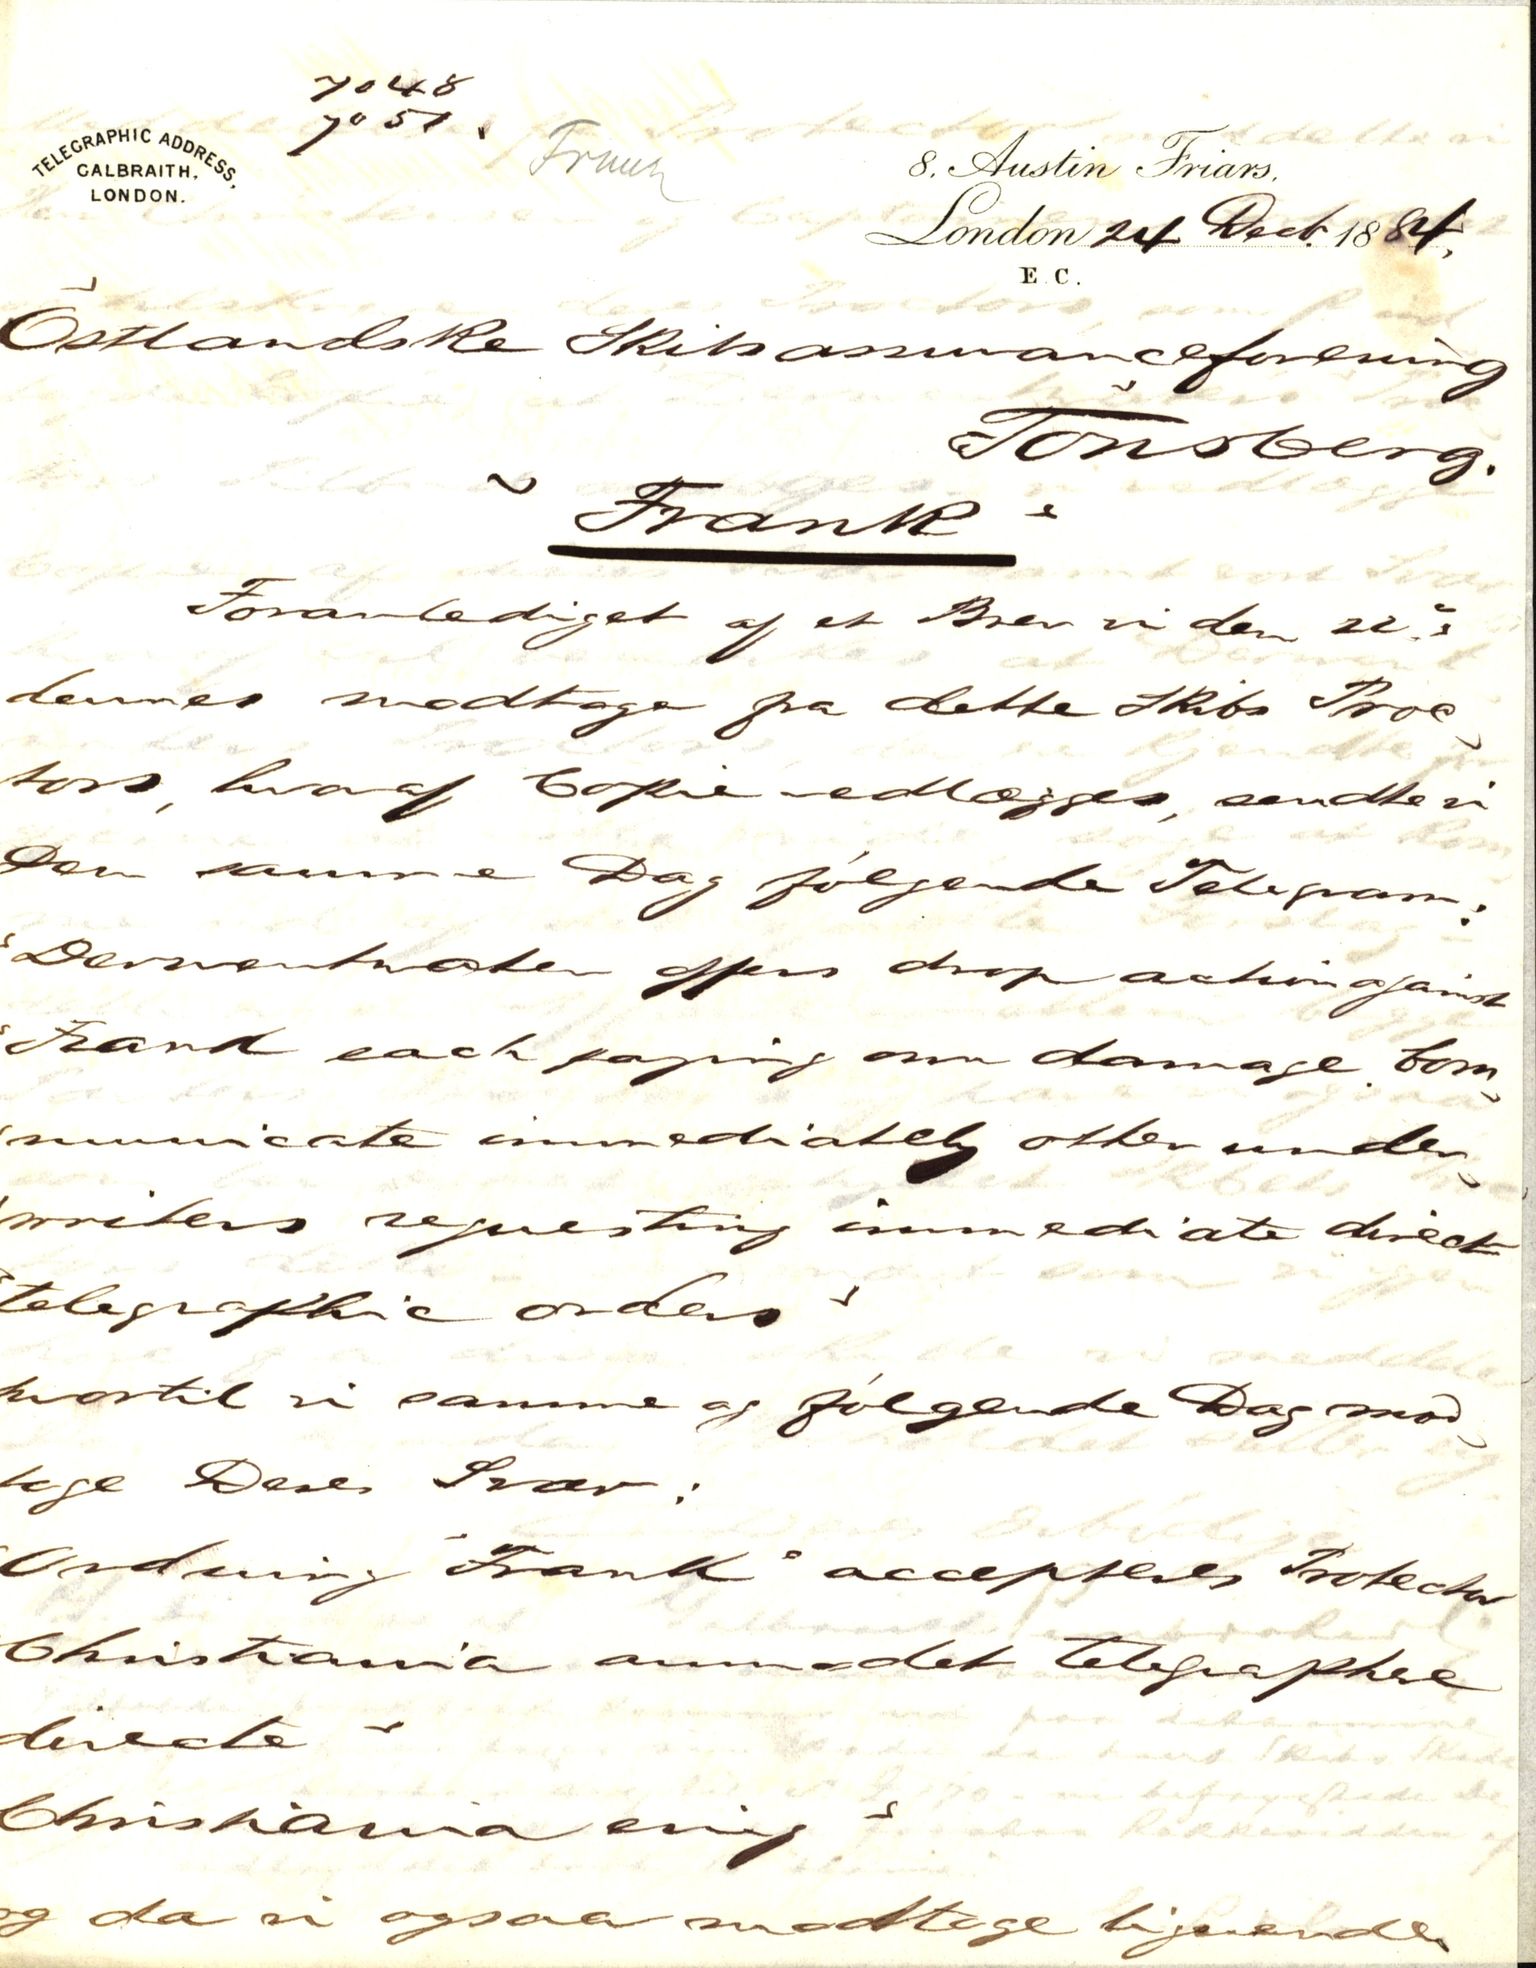 7048
7051.
Frank
TELEGRAPHIC ADDRESS,
GALBRAITH,
LONDON.
8, Austin Friars,
London 24 Decb. 1884,
E.C.
Östlandske Skibsassuranceforening
Tönsberg.
"Frank"
Foranlediget af et Brev vi den 22.
dennes modtoge fra dette Skibs Proc,
tors, hvoraf Copie vedlægges, sendte vi
Dem samme Dag følgende Telegram:
"Derwentwater offers drop action against
"Frank each paying own damage. Com,
"municate immediately other under,
"writers requesting immediate direct
"telegraphic orders"
hvortil vi samme og følgende Dag mod,
toge Deres Svar:
"Ordning "Frank" accepteres Protector
Christiania anmodet telegraphere
directe"
Christiania enig"
og da vi ogsaa modtoge lignende